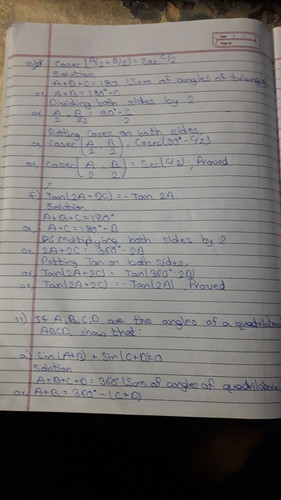 e) Cosec (A/2 + B/2) = Sec C/2
Solution
A+B+C=180 (Sum of angles of triangle
or, A+B=180°-C
Dividing both sides by 2
or, A/2 + B/2 = 90° - C/2
Putting Cosec on both sides,
or, Cosec (A/2 + B/2) = Cosec(90° - C/2)
or, Cosec (A/2 + B/2) = Sec(C/2), Proved
f) Tan(2A+2C) = -Tan 2B
Solution
A+B+C=180°
or, A+C=180°-B
Multiplying both sides by 2
or, 2A+2C = 360°-2B
Putting Tan on both sides,
or, Tan(2A+2C) = Tan(360°-2B)
or, Tan(2A+2C) = -Tan(2B), Proved
11) If A,B,C,D are the angles of a quadrilateral
ABCD, show that:
a) Sin(A+B) + Sin(C+D)=0
Solution
A+B+C+D=360° (Sum of angles of quadrilateral
or, A+B=360°-(C+D)